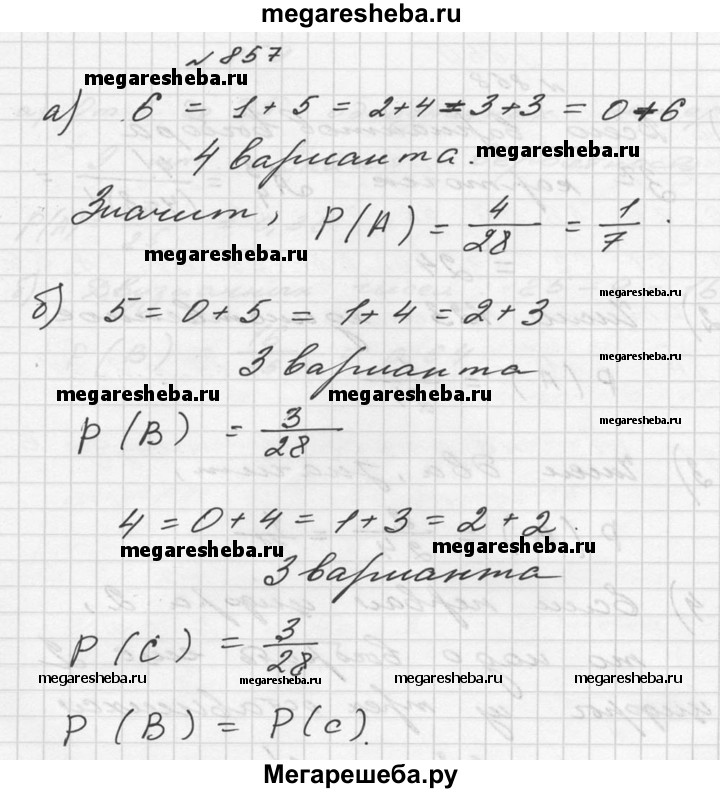 megaresheba.ru
№ 857
megaresheba.ru
а) 6 = 1 + 5 = 2 + 4 = 3 + 3 = 0 + 6
4 варианта.
megaresheba.ru
Значит, P(A) = 4/28 = 1/7.
megaresheba.ru
б) 5 = 0 + 5 = 1 + 4 = 2 + 3
megaresheba.ru
3 варианта
megaresheba.ru
megaresheba.ru megaresheba.ru
P(B) = 3/28
4 = 0 + 4 = 1 + 3 = 2 + 2.
megaresheba.ru megaresheba.ru
3 варианта
P(C) = 3/28
megaresheba.ru megaresheba.ru megaresheba.ru megaresheba.ru
P(B) = P(c).
Мегарешеба.ру